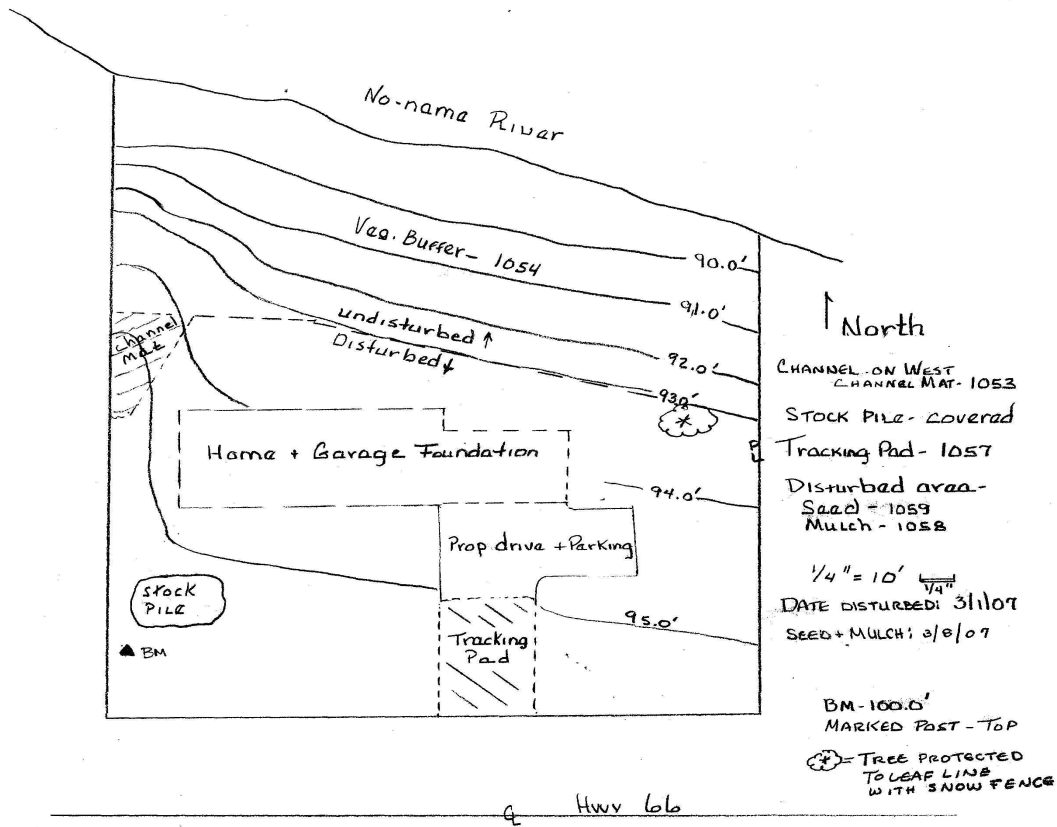 No-name River
Veg. Buffer- 1054
90.0'
91.0'
undisturbed
Disturbed
92.0'
93.0'
Channel
mat
Home + Garage Foundation
94.0'
Prop drive + Parking
STOCK
PILE
BM
Tracking
Pad
95.0'
℄ Hwy 66
North
CHANNEL ON WEST
CHANNEL MAT- 1053
STOCK PILE- covered
PL
Tracking Pad- 1057
Disturbed area-
Seed - 1059
Mulch - 1058
1/4" = 10'
1/4"
DATE DISTURBED: 3/1/07
SEED + MULCH: 3/8/07
BM-100.0'
MARKED POST - TOP
= TREE PROTECTED
TO LEAF LINE
WITH SNOW FENCE